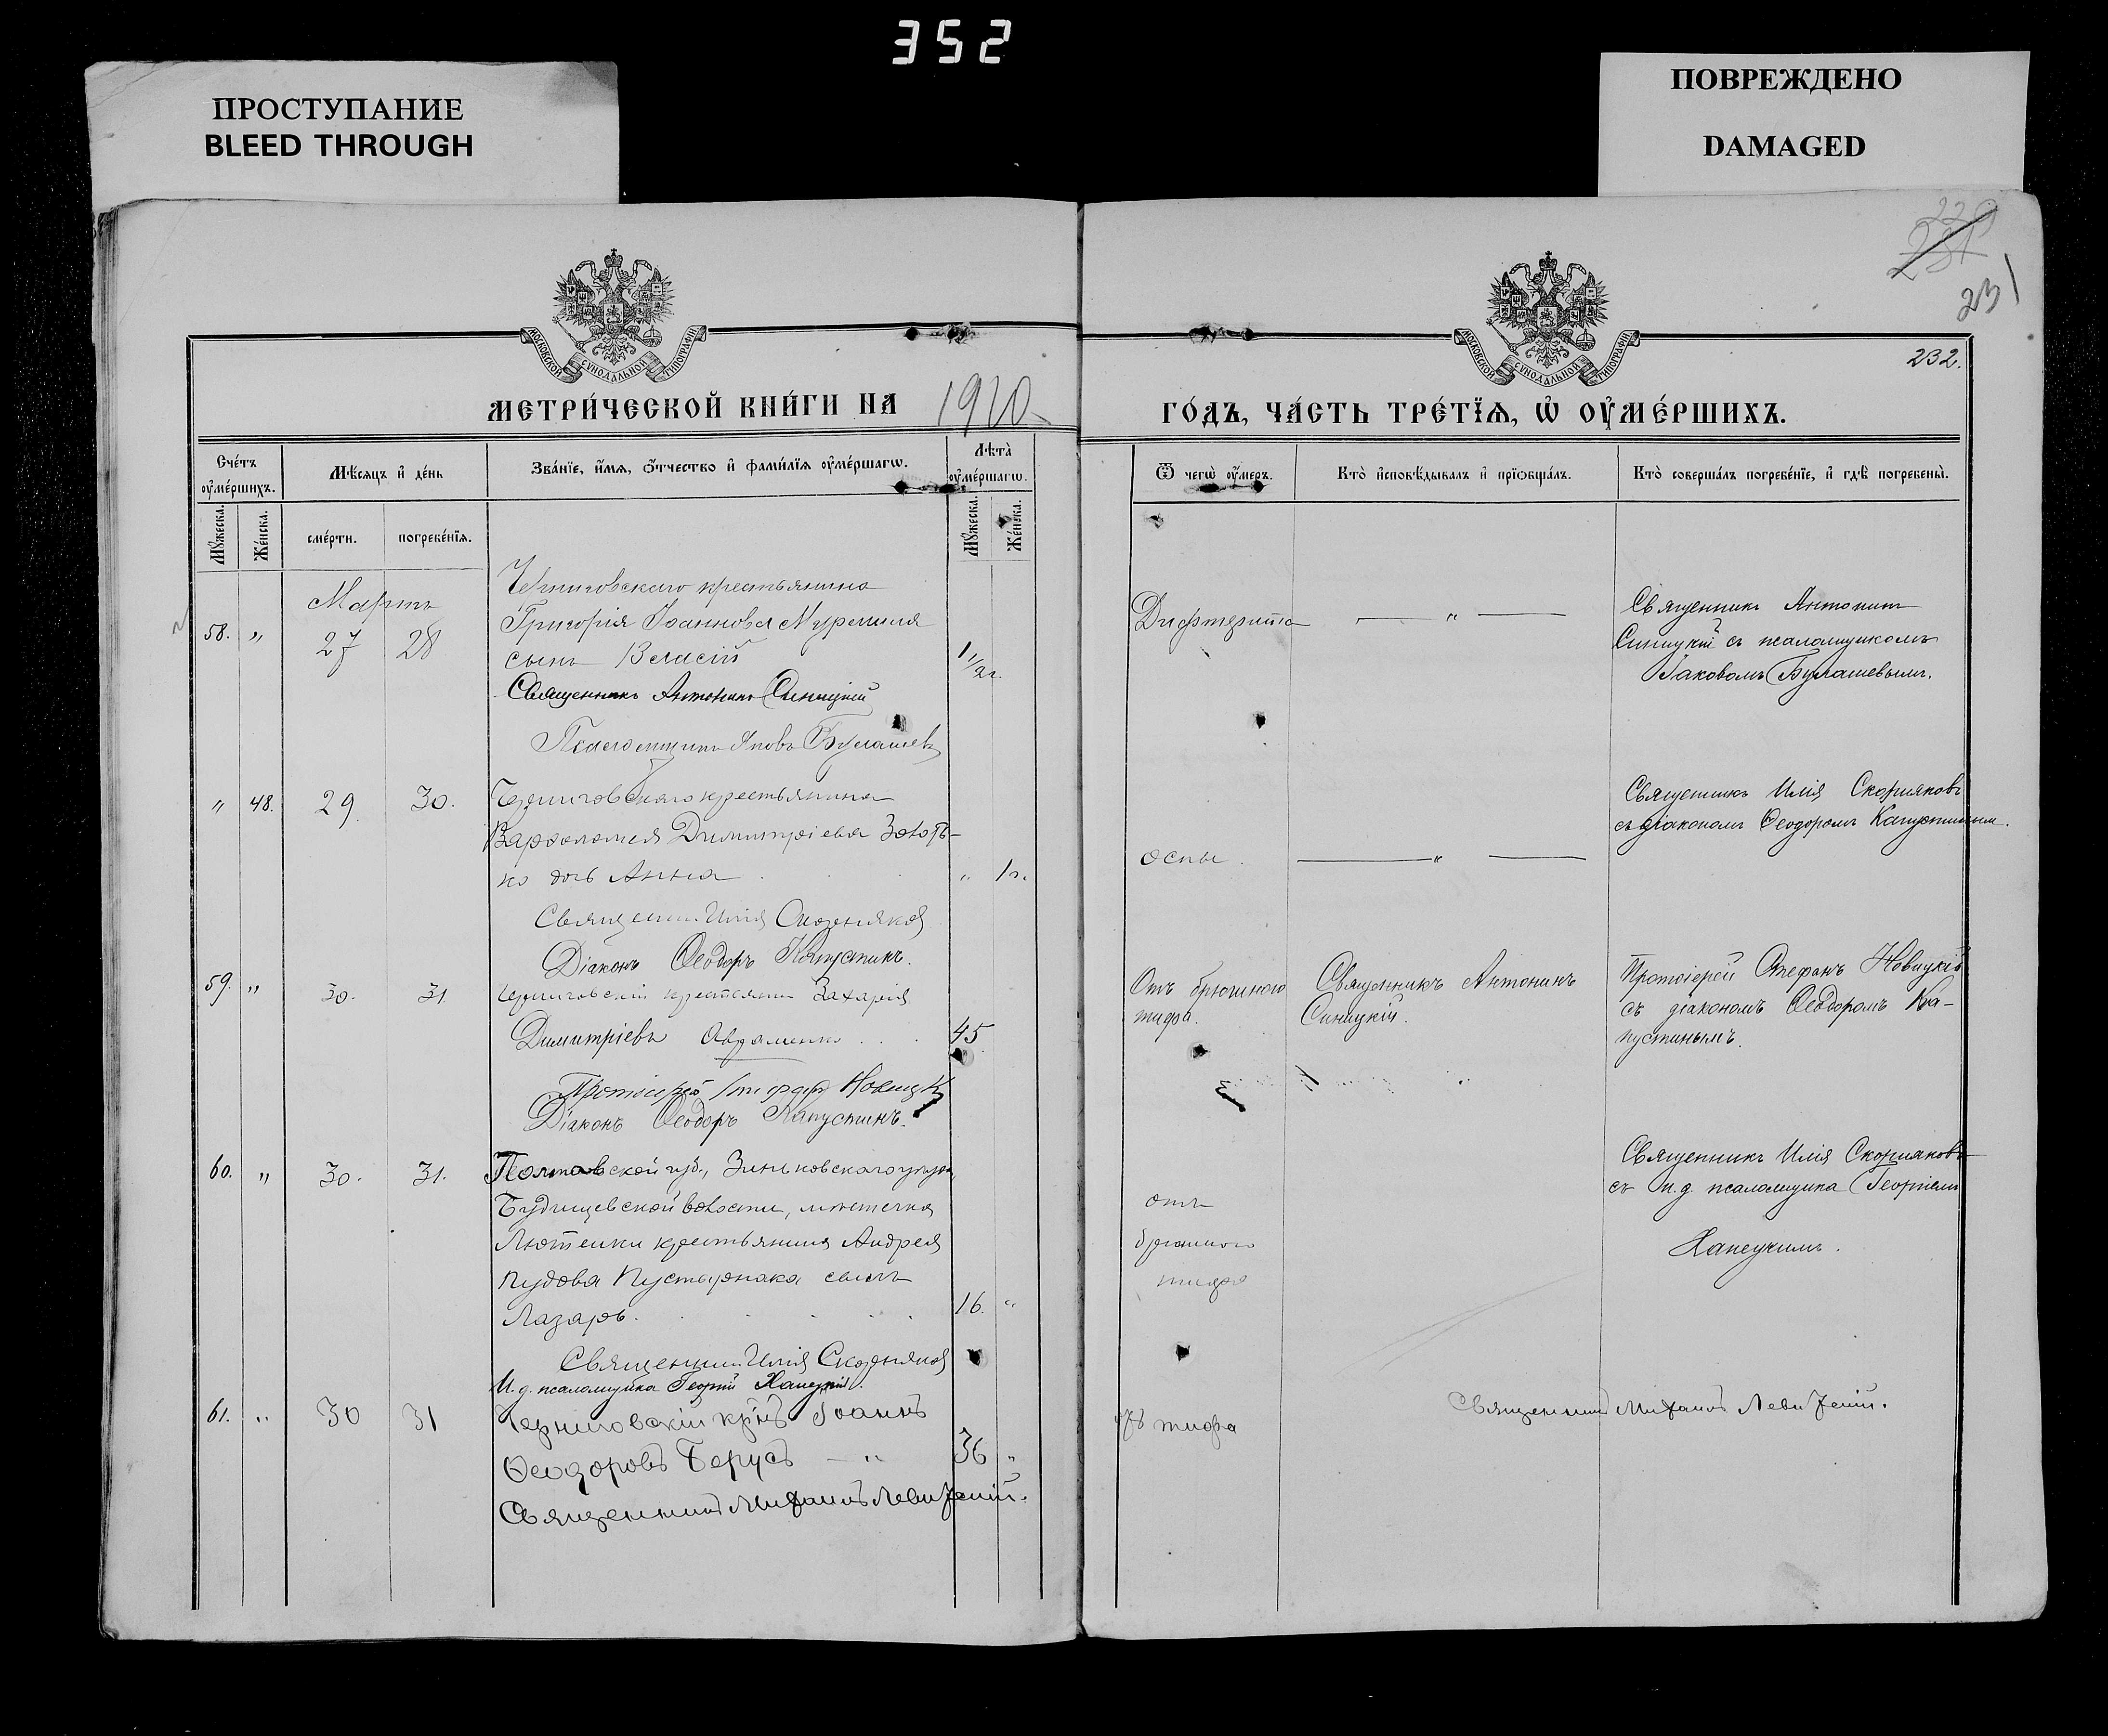 352
ПРОСТУПАНИЕ
BLEED THROUGH
ПОВРЕЖДЕНО
DAMAGED
229
231
231
232.
МОСКОВСКОЙ СѴНОДАЛЬНОЙ ТИПОГРАФІИ
МОСКОВСКОЙ СѴНОДАЛЬНОЙ ТИПОГРАФІИ
МЕТРИ́ЧЕСКОЙ КНИ́ГИ НА 1920
ГО́ДЪ, ЧА́СТЬ ТРЕ́ТЇѦ, Ѡ҆ ОУ҆МЕ́РШИХЪ.
Сче́тъ оу҆ме́ршихъ.
Мѣ́сяцъ и҆ де́нь
Зва́нїе, и҆́мѧ, ѻ҆́тчество и҆ фами́лїѧ оу҆ме́ршагѡ.
Лѣ́та̀ оу҆ме́ршагѡ.
Ѿ чегѡ̀ оу҆́меръ.
Кто̀ и҆сповѣ́дывалъ и҆ прїѡбща́лъ.
Кто̀ соверша́лъ погребе́нїе, и҆ гдѣ̀ погребены̀.
Мꙋ́жеска.
Же́нска.
сме́рти.
погребе́нїѧ.
Мꙋ́жеска.
Же́нска.
Мартъ
58. " 27 28
Черниговскаго крестьянина
Григорія Іоаннова
сынъ Власій 1 1/2 г.
Священникъ Антонинъ Синицкій
Псаломщикъ Яковъ Булашевъ
Дифтерита — " —
Священникъ Антонин
Синицкій съ псаломщикомъ
Іаковомъ Булашевымъ.
" 48. 29. 30.
Черниговскаго крестьянина
Варфоломея Димитріева Золоть-
ко дочь Анна " 1 г.
Священник Илія Скорняков
Діаконъ Ѳеодоръ Капустинъ.
оспы. — " —
Священникъ Илія Скорняковъ
съ діакономъ Ѳеодоромъ Капустиным.
59. " 30. 31.
Черниговскій крестьянин Захарія
Димитріевъ Авраменко 45
Протоіерей Стефан Новицкій
Діаконъ Ѳеодоръ Капустинъ.
Отъ брюшного
тифа.
Священникъ Антонинъ
Синицкій.
Протоіерей Стефанъ Новицкій
съ діакономъ Ѳеодоромъ Ка-
пустинымъ.
60. " 30. 31.
Полтавской губ., Зиньковскаго уезда,
Будищевской волости, местечка
Лютеньки крестьянина Андрея
Пудова Пустырнака сынъ
Лазарь. 16. "
Священник Илія Скорняков
И. д. псаломщика Георгій Ханецкій.
отъ
брюшного
тифа
Священникъ Илія Скорняковъ
съ и. д. псаломщика Георгіем
Ханецкимъ.
61. " 30 31
Черниговскій кр-нъ Іоаннъ
Ѳеодоровъ Берусъ — " 36 "
Священник Михаилъ Левитскій.
отъ тифа
Священник Михаилъ Левитскій.